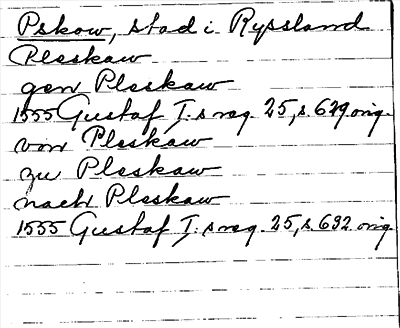 Pskow, stad i Ryssland
Pleskaw
gen Pleskaw
1555 Gustaf I:s reg. 25, s. 629 orig.
von Pleskaw
zu Pleskaw
nach Pleskaw
1555 Gustaf I:s reg. 25, s. 632 orig.